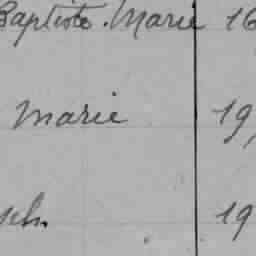 Baptiste. Marie 16
Marie 19,
19